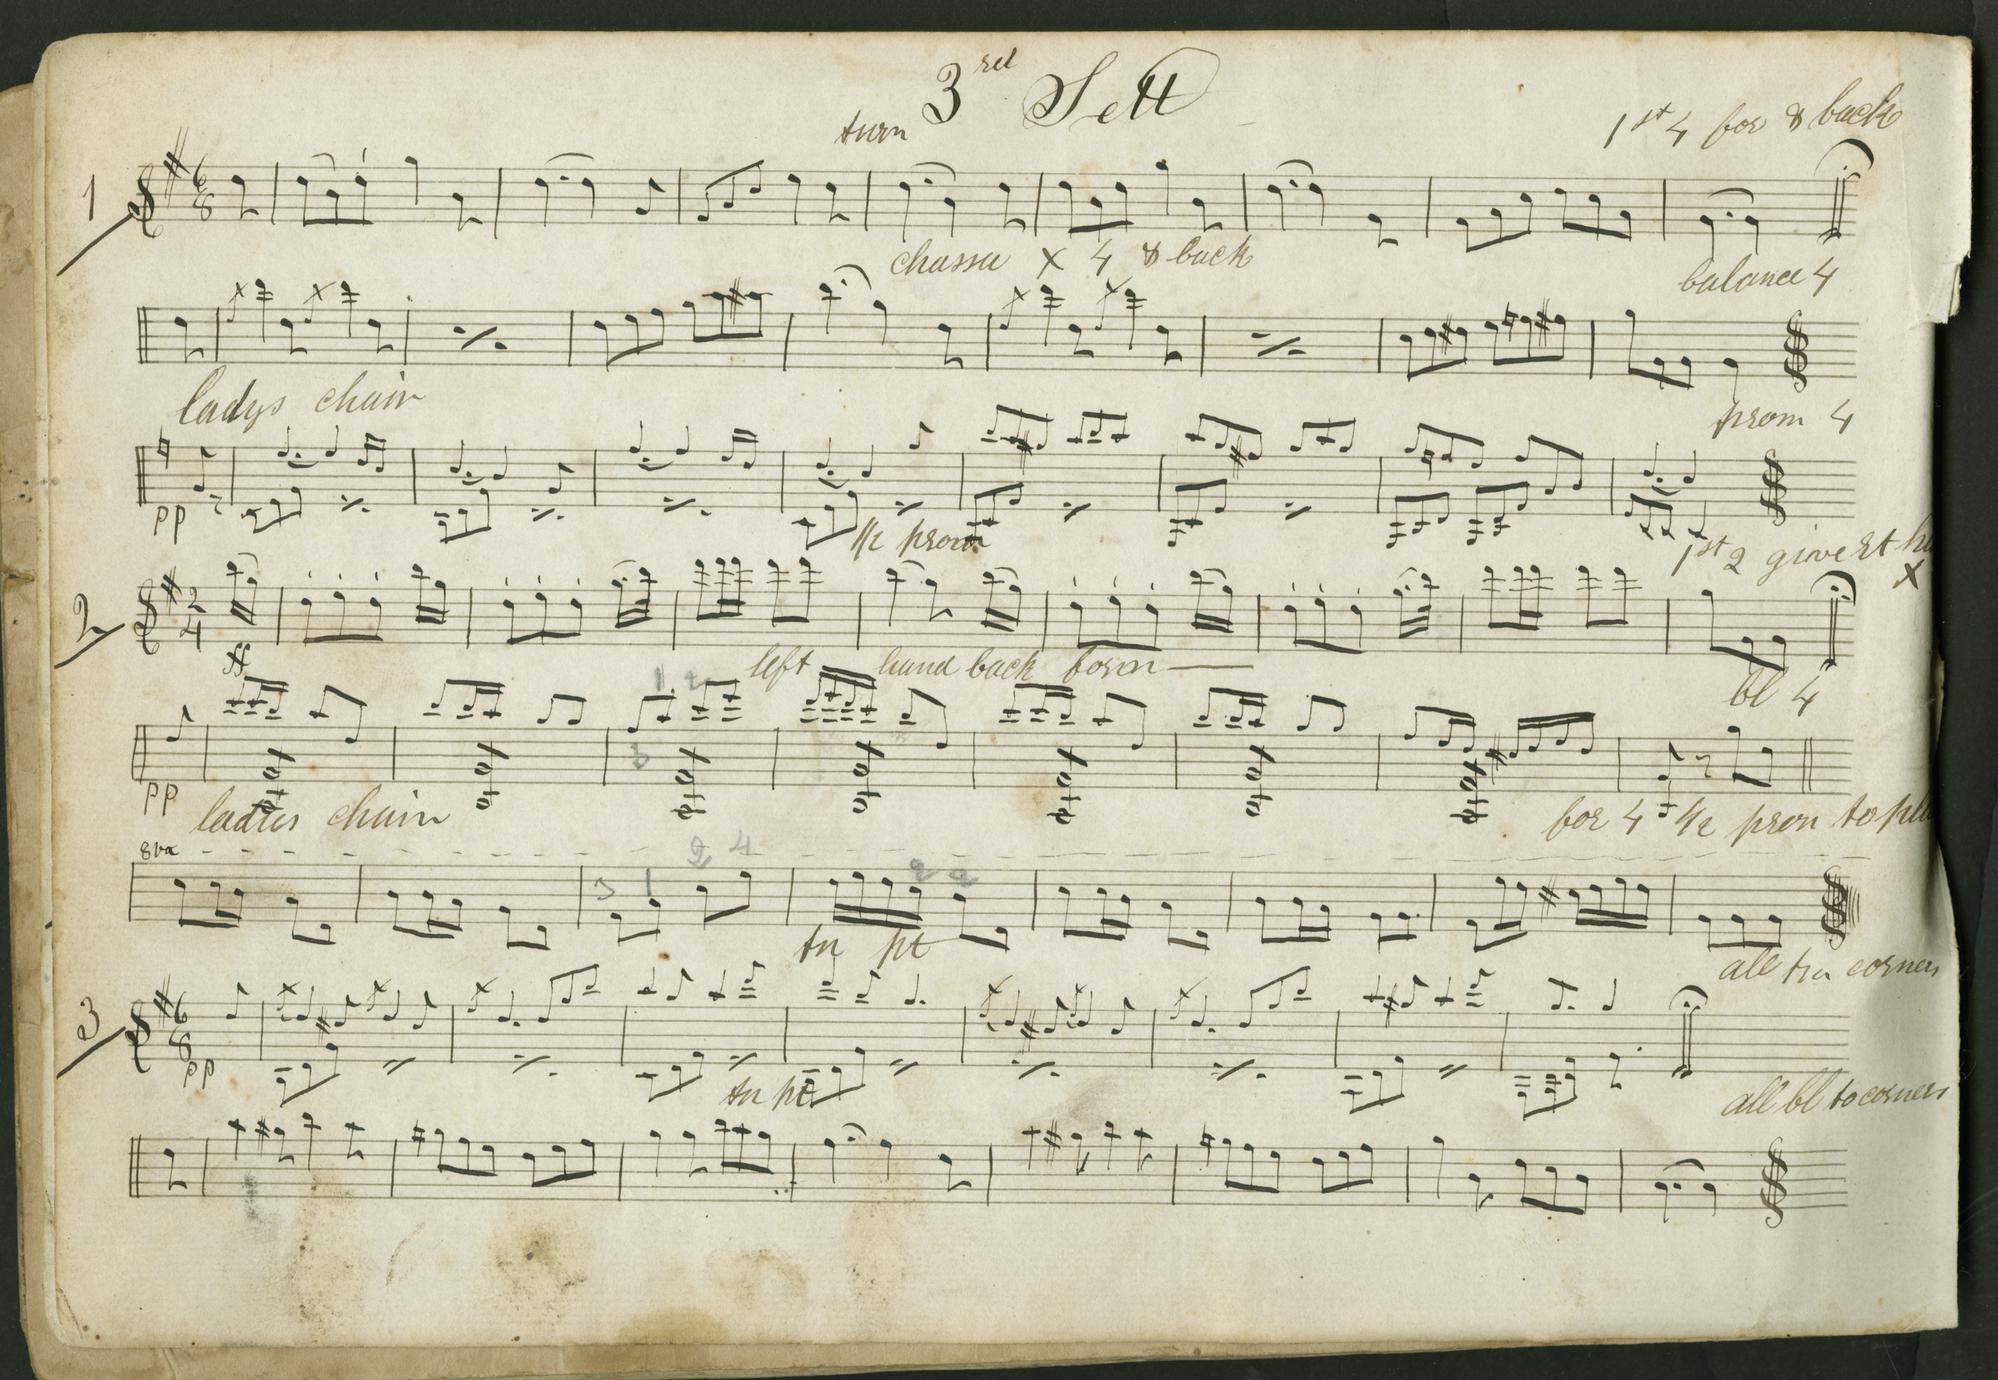 3rd Sett
turn
1st 4 for & back
1
6
8
chassa x 4 & back
balance 4
ladys chain
prom 4
pp
1/2 prom
1st 2 give rt
x
2
2
4
ff
left hand back form
bl 4
1 2
3
pp
ladies chain
for 4 1/2 prom to
8va
3 1 2 4
2 2
tn pt
all tn corners
3
6
8
pp
tn pt
all bl to corners